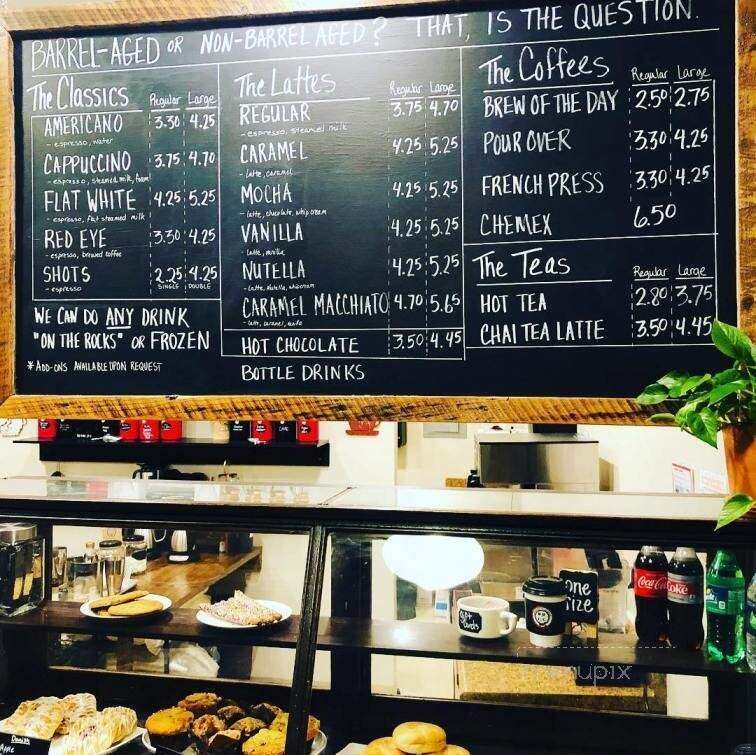 BARREL-AGED OR NON-BARREL AGED? THAT, IS THE QUESTION.
The Classics Regular Large
AMERICANO 3.30 4.25
- espresso, water
CAPPUCCINO 3.75 4.70
- espresso, steamed milk, foam
FLAT WHITE 4.25 5.25
- espresso, flat steamed milk
RED EYE 3.30 4.25
- espresso, brewed coffee
SHOTS 2.25 4.25
- espresso SINGLE DOUBLE
WE CAN DO ANY DRINK
"ON THE ROCKS" OR FROZEN
* ADD-ONS AVAILABLE UPON REQUEST
The Lattes Regular Large
REGULAR 3.75 4.70
- espresso, steamed milk
CARAMEL 4.25 5.25
- latte, caramel
MOCHA 4.25 5.25
- latte, chocolate, whip cream
VANILLA 4.25 5.25
- latte, vanilla
NUTELLA 4.25 5.25
- latte, nutella, whipcream
CARAMEL MACCHIATO 4.70 5.65
- latte, caramel,
HOT CHOCOLATE 3.50 4.45
BOTTLE DRINKS
The Coffees Regular Large
BREW OF THE DAY 2.50 2.75
POUR OVER 3.30 4.25
FRENCH PRESS 3.30 4.25
CHEMEX 6.50
The Teas Regular Large
HOT TEA 2.80 3.75
CHAI TEA LATTE 3.50 4.45
one
size
Coca-Cola
Coke
Danish
Apple